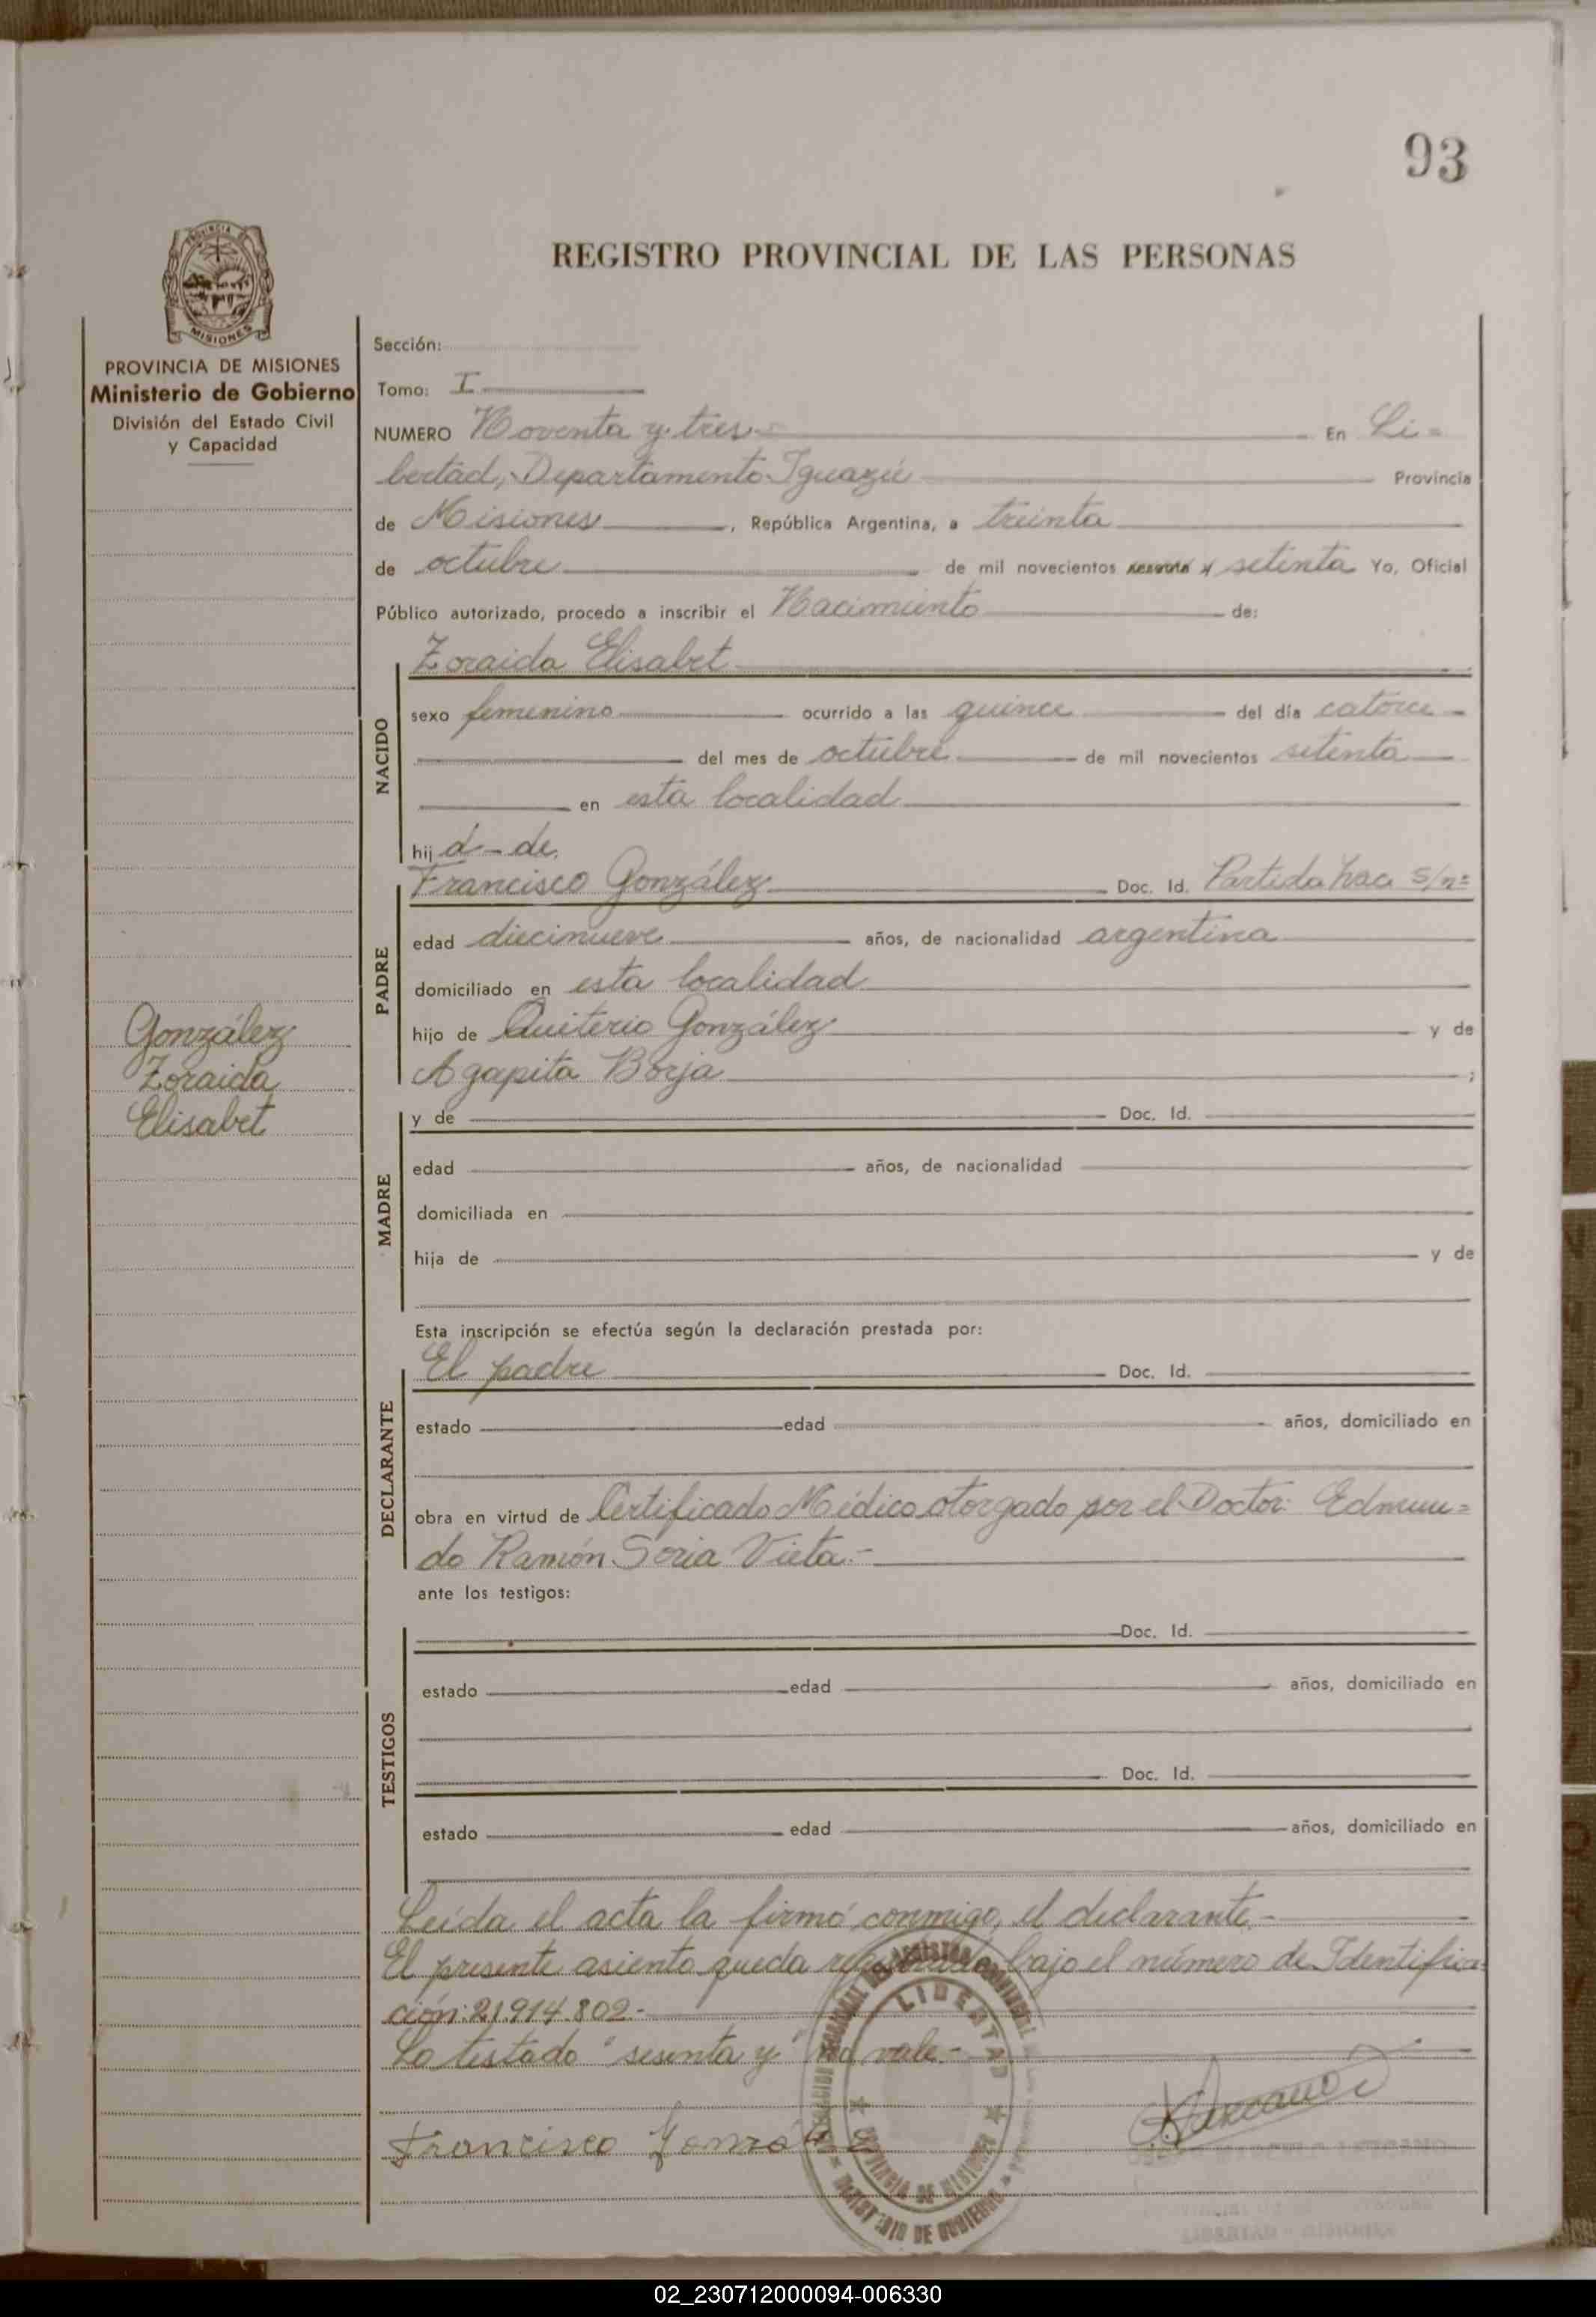 93
REGISTRO PROVINCIAL DE LAS PERSONAS
MISIONES
PROVINCIA DE MISIONES
Ministerio de Gobierno
División del Estado Civil
y Capacidad
Sección:
Tomo: I
NUMERO Noventa y tres En Li=
bertad, Departamento Iguazú Provincia
de Misiones, República Argentina, a treinta
de octubre de mil novecientos sesenta y setenta Yo, Oficial
Público autorizado, procedo a inscribir el Nacimiento de:
NACIDO
Zoraida Elisabet
sexo femenino ocurrido a las quince del día catorce
del mes de octubre de mil novecientos setenta
en esta localidad
hij a de
PADRE
Francisco González Doc. Id. Partida Nac. S/nº
edad diecinueve años, de nacionalidad argentina
domiciliado en esta localidad
hijo de Quiterio González y de
Agapita Borja ;
González
Zoraida
Elisabet
MADRE
y de Doc. Id.
edad años, de nacionalidad
domiciliada en
hija de y de
Esta inscripción se efectúa según la declaración prestada por:
DECLARANTE
El padre Doc. Id.
estado edad años, domiciliado en
obra en virtud de Certificado Médico otorgado por el Doctor: Edmun=
do Ramón Soria Vieta.-
ante los testigos:
TESTIGOS
Doc. Id.
estado edad años, domiciliado en
Doc. Id.
estado edad años, domiciliado en
Leída el acta la firmó conmigo, el declarante.-
El presente asiento queda registrado bajo el número de Identifica-
ción: 21.914.802.-
Lo testado "sesenta y" no vale.-
LIBERTAD
PROVINCIA DE MISIONES
MINISTERIO DE GOBIERNO
Francisco González
02_230712000094-006330